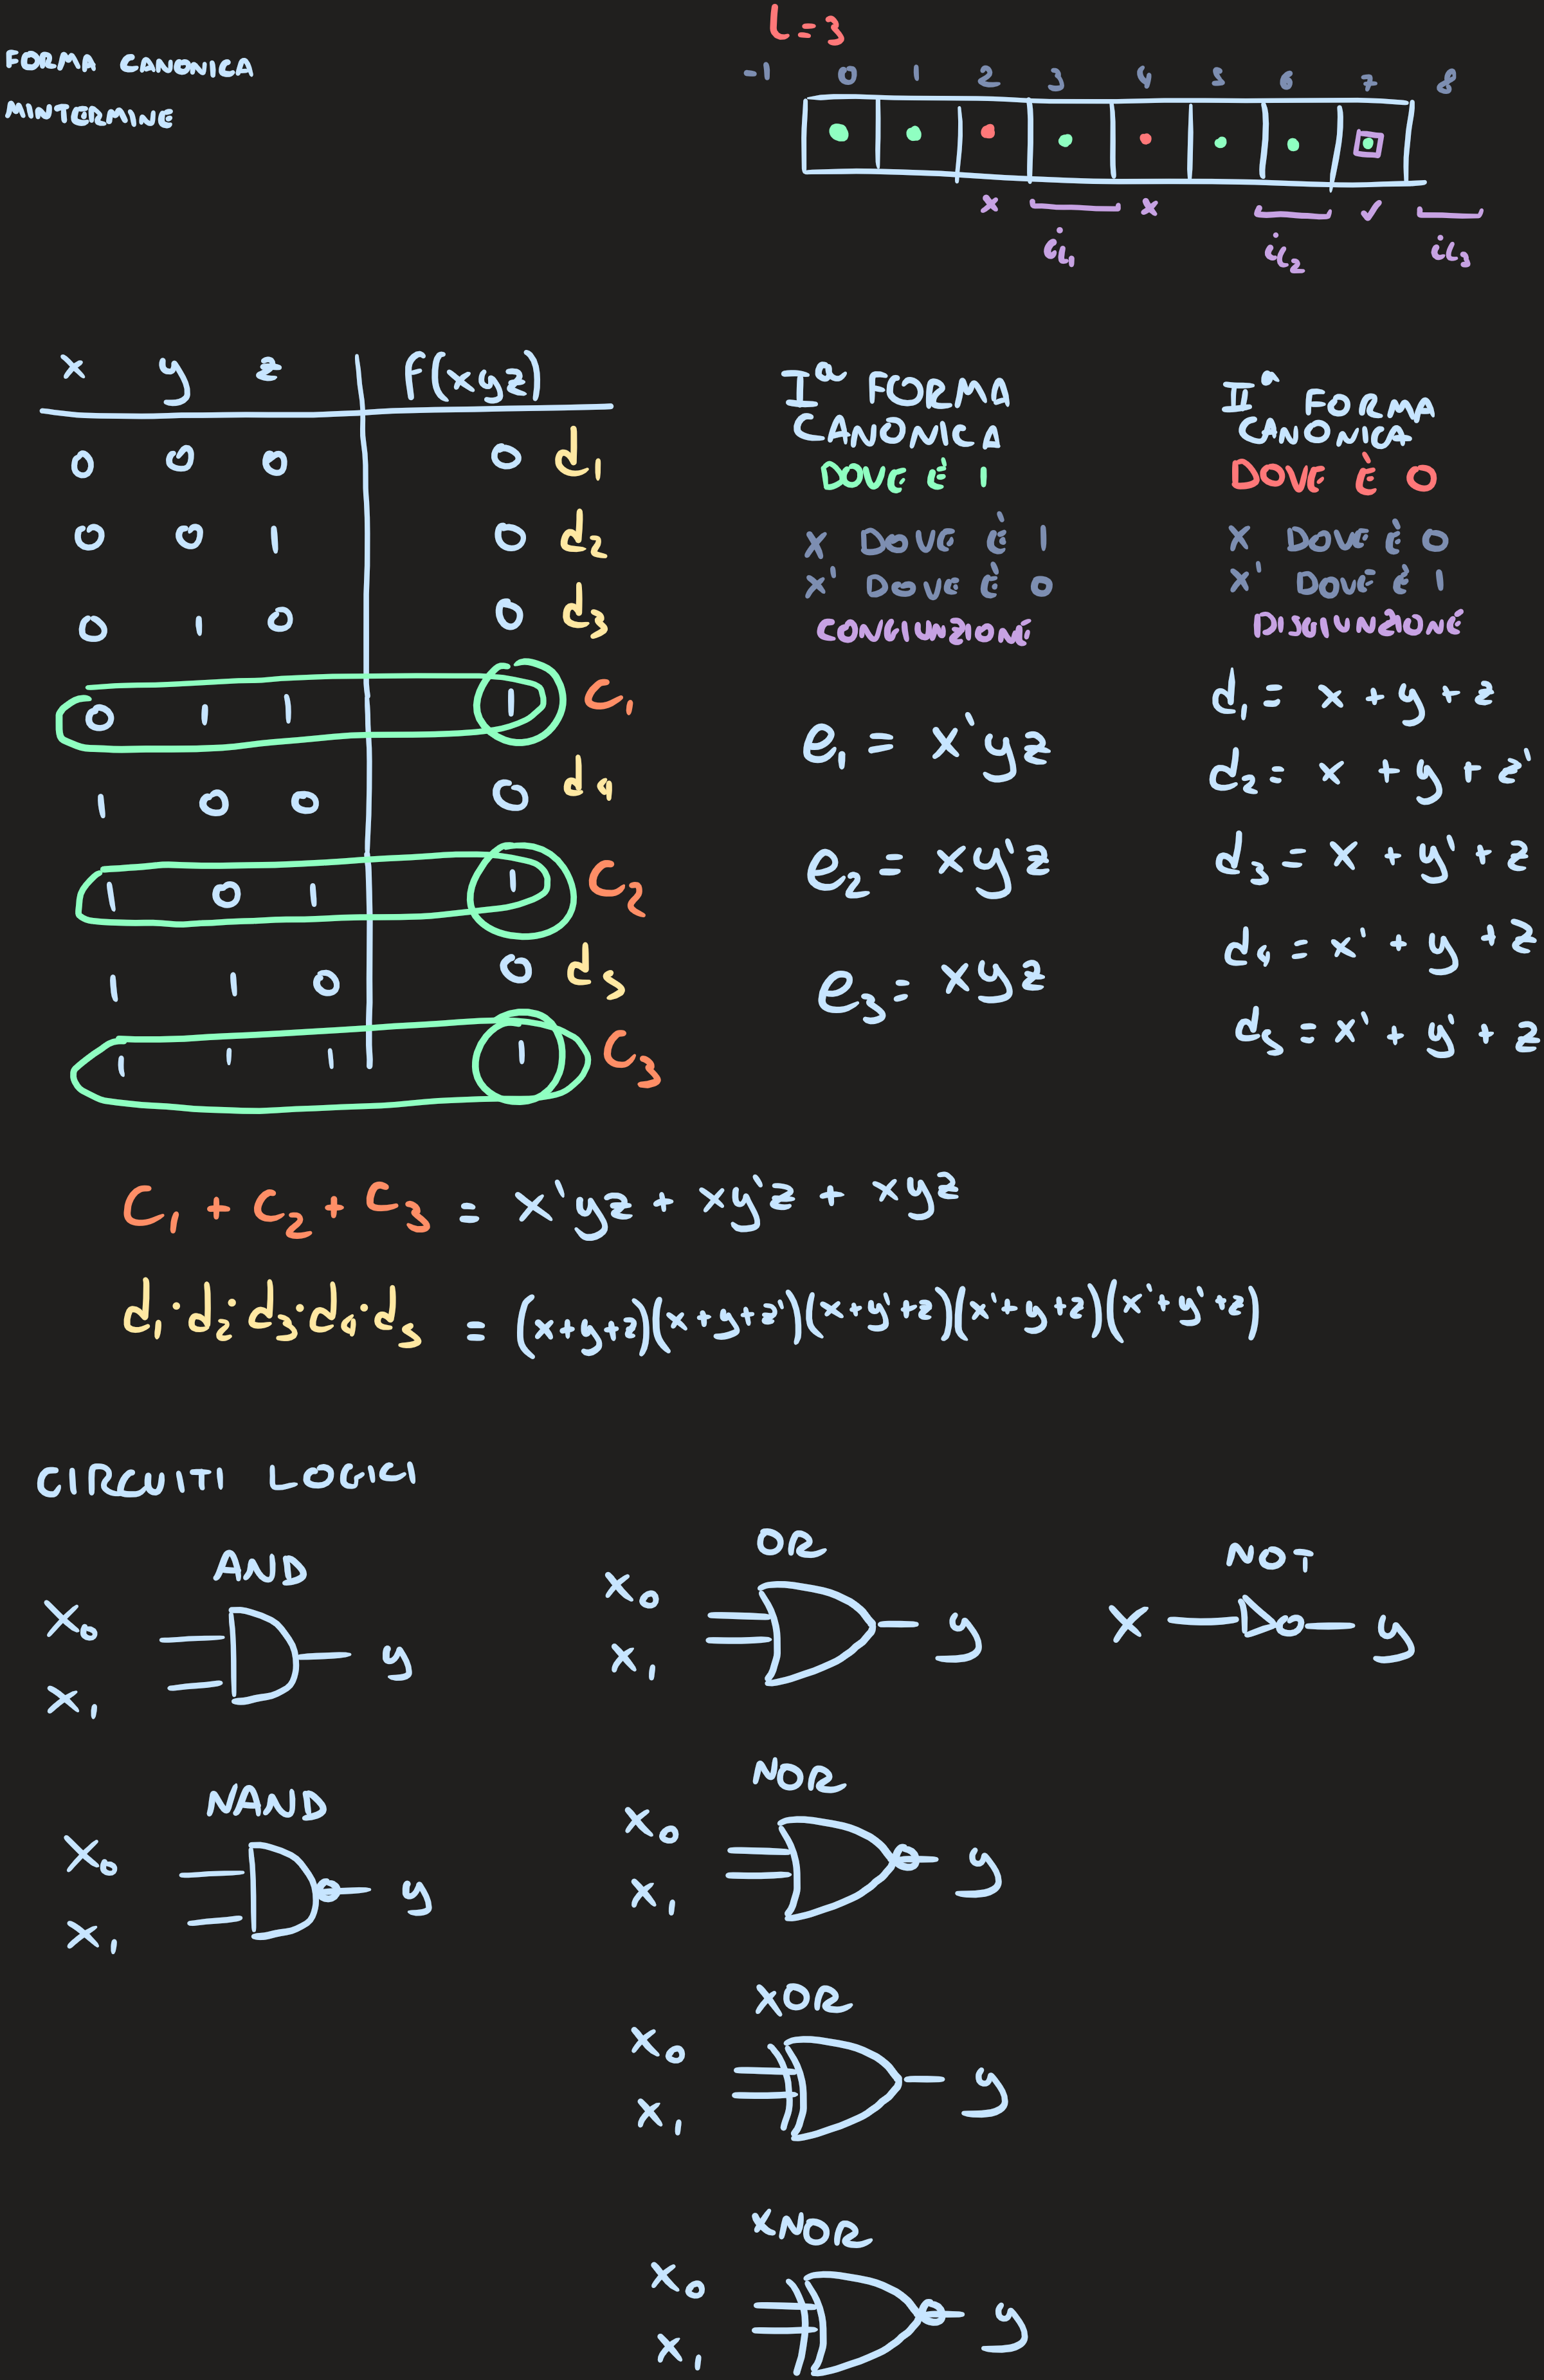 L=3
FORMA CANONICA
MINTERMINE
-1 0 1 2 3 4 5 6 7 8
x x ✓
x y z f(xyz)
0 0 0 0 d1
0 0 1 0 d2
0 1 0 0 d3
0 1 1 1 C1
1 0 0 0 d4
1 0 1 1 C2
1 1 0 0 d5
1 1 1 1 C3
Iª FORMA
CANONICA
DOVE È 1
X DOVE È 1
X' DOVE È 0
CONGIUNZIONE
e1 = x'yz
e2 = xy'z
e3 = xyz
IIª FORMA
CANONICA
DOVE È 0
X DOVE È 0
X' DOVE È 1
DISGIUNZIONE
d1 = x + y + z
d2 = x + y + z'
d3 = x + y' + z
d4 = x' + y + z
d5 = x' + y' + z
C1 + C2 + C3 = x'yz + xy'z + xyz
d1·d2·d3·d4·d5 = (x+y+z)(x+y+z')(x+y'+z)(x'+y+z)(x'+y'+z)
CIRCUITI LOGICI
AND
X0
X1
y
OR
X0
X1
y
NOT
X
y
NAND
X0
X1
y
NOR
X0
X1
y
XOR
X0
X1
y
XNOR
X0
X1
y